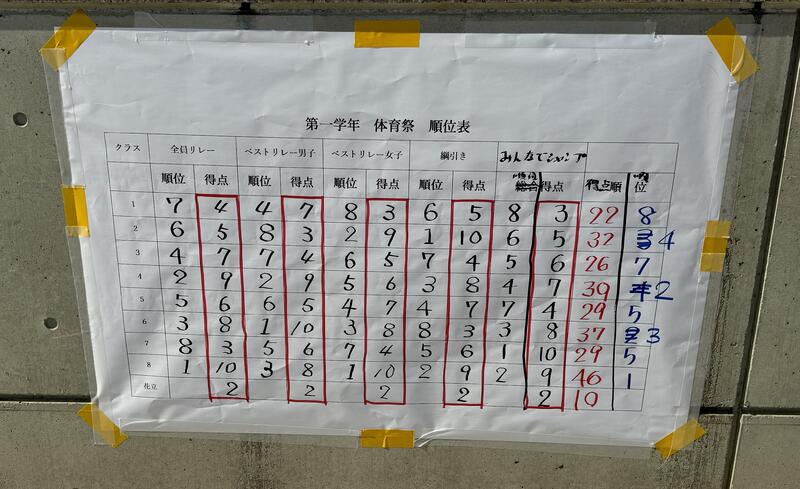 第一学年 体育祭 順位表
クラス 全員リレー ベストリレー男子 ベストリレー女子 綱引き みんなでジャンプ
順位 得点 順位 得点 順位 得点 順位 得点 順位 総合 得点 得点 順 順位
1 7 4 4 7 8 3 6 5 8 3 22 8
2 6 5 8 3 2 9 1 10 6 5 32 3 4
3 4 7 7 4 6 5 7 4 5 6 26 7
4 2 9 2 9 5 6 3 8 4 7 39 2
5 5 6 6 5 4 7 4 7 7 4 29 5
6 3 8 1 10 3 8 8 3 3 8 37 2 3
7 8 3 5 6 7 4 5 6 1 10 29 5
8 1 10 3 8 1 10 2 9 2 9 46 1
花立 2 2 2 2 2 10